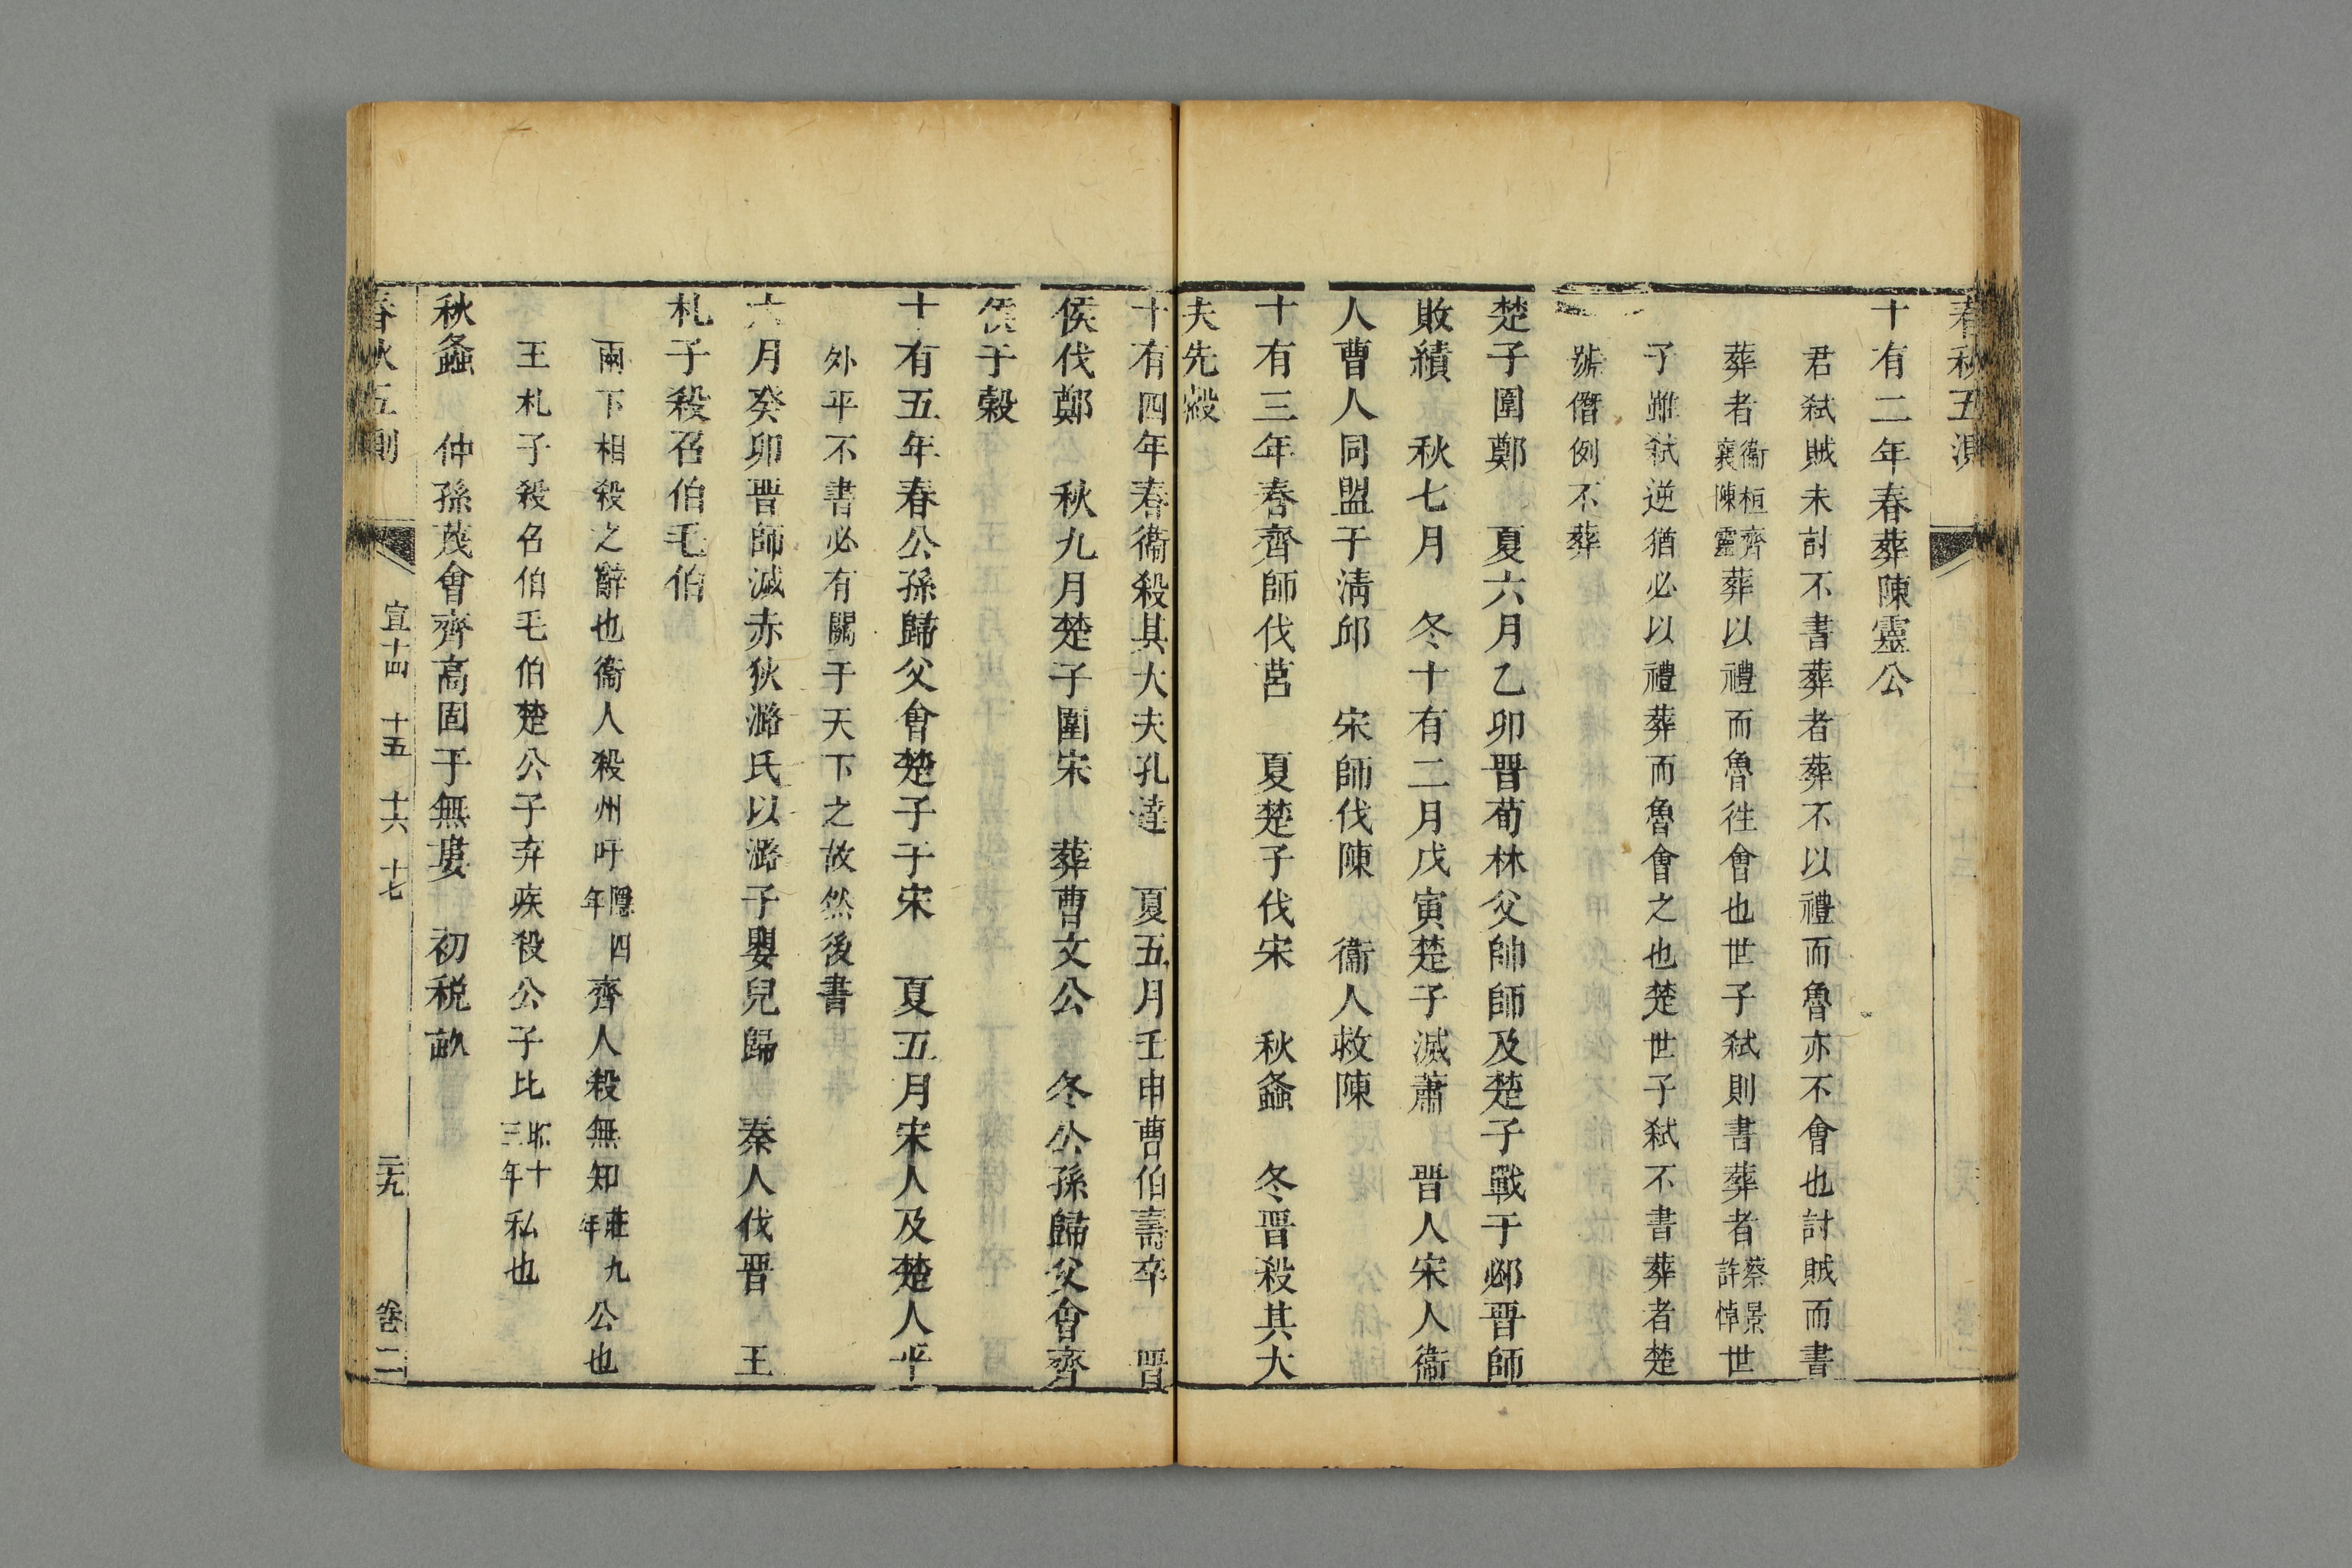 春秋五測
十有二年春葬陳靈公
君弑賊未討不書葬者葬不以禮而魯亦不會也討賊而書
葬者衞桓齊襄陳靈葬以禮而魯徃會也世子弑則書葬者蔡景許悼世
子雖弑逆猶必以禮葬而魯會之也楚世子弑不書葬者楚
號僭例不葬
楚子圍鄭　夏六月乙卯晋荀林父帥師及楚子戰于邲晋師
敗績　秋七月　冬十有二月戊寅楚子滅蕭　晋人宋人衞
人曹人同盟于淸邱　宋師伐陳　衞人救陳
十有三年春齊師伐莒　夏楚子伐宋　秋螽　冬晋殺其大
夫先縠
十有四年春衞殺其大夫孔達　夏五月壬申曹伯壽卒　晋
侯伐鄭　秋九月楚子圍宋　葬曹文公　冬公孫歸父會齊
侯于穀
十有五年春公孫歸父會楚子于宋　夏五月宋人及楚人平
外平不書必有關于天下之故然後書
六月癸卯晋師滅赤狄潞氏以潞子嬰兒歸　秦人伐晋　王
札子殺召伯毛伯
兩下相殺之辭也衞人殺州吁隱四年齊人殺無知莊九年公也
王札子殺召伯毛伯楚公子弃疾殺公子比昭十三年私也
秋螽　仲孫蔑會齊高固于無婁　初税畝
春秋五測　宣十四　十五　十六　十七　二十九　卷二